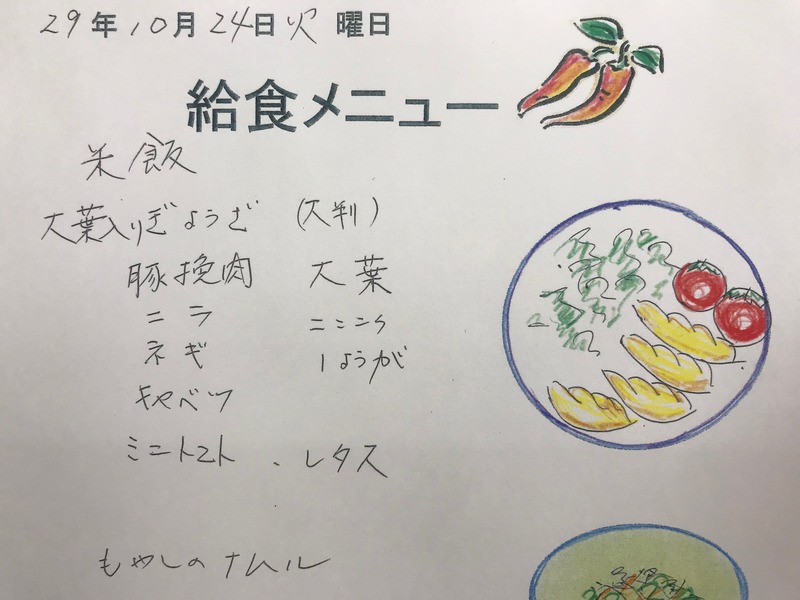 29年10月24日火曜日
給食メニュー
米飯
大葉入りぎょうざ (大判)
豚挽肉 大葉
ニラ ニンニク
ネギ しょうが
キャベツ
ミニトマト . レタス
もやしのナムル